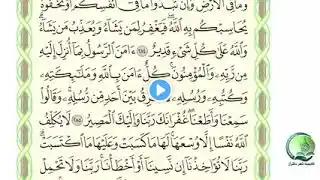 وَمَا فِي ٱلْأَرْضِ وَإِن تُبْدُوا۟ مَا فِىٓ أَنفُسِكُمْ أَوْ تُخْفُوهُ
يُحَاسِبْكُم بِهِ ٱللَّهُ فَيَغْفِرُ لِمَن يَشَآءُ وَيُعَذِّبُ مَن يَشَآءُ
وَٱللَّهُ عَلَىٰ كُلِّ شَىْءٍ قَدِيرٌ ٢٨٤ ءَامَنَ ٱلرَّسُولُ بِمَآ أُنزِلَ إِلَيْهِ
مِن رَّبِّهِۦ وَٱلْمُؤْمِنُونَ كُلٌّ ءَامَنَ بِٱللَّهِ وَمَلَـٰٓئِكَتِهِۦ
وَكُتُبِهِۦ وَرُسُلِهِۦ نُفَرِّقُ بَيْنَ أَحَدٍ مِّن رُّسُلِهِۦ وَقَالُوا۟
سَمِعْنَا وَأَطَعْنَا غُفْرَانَكَ رَبَّنَا وَإِلَيْكَ ٱلْمَصِيرُ ٢٨٥ لَا يُكَلِّفُ
ٱللَّهُ نَفْسًا إِلَّا وُسْعَهَا لَهَا مَا كَسَبَتْ وَعَلَيْهَا مَا ٱكْتَسَبَتْ
رَبَّنَا لَا تُؤَاخِذْنَآ إِن نَّسِينَآ أَوْ أَخْطَأْنَا رَبَّنَا وَلَا تَحْمِلْ